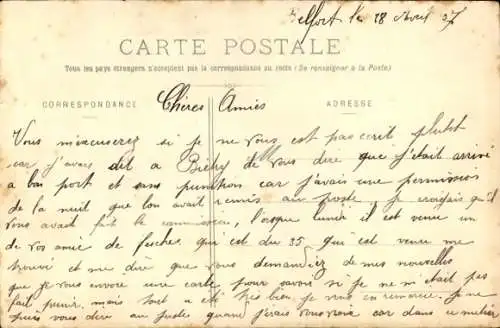 Belfort le 18 Avril 07
CARTE POSTALE
Tous les pays étrangers n'acceptent pas la correspondance au recto (Se renseigner à la Poste)
CORRESPONDANCE
ADRESSE
Chères Amies
Vous m'excuserez si je ne vous est pas ecrit plutot
car j'avais dit a de vous dire que j'était arrivé
a bon port et sans punition car j'avais une permission
de la nuit que l'on avait remis au poste je croyais qu'il
vous avait fait la commission, lorsque lundi il est venu un
de vos amie de qui est du 35 qui est venu me
trouvé et me dire que vous demandiez de mes nouvelles
que je vous envoie une carte pour savoir si je ne m'était pas
fait punir, mais tout a été très bien je vous en remercie. Je ne
puis vous dire au juste quand j'irais vous voir car dans ce